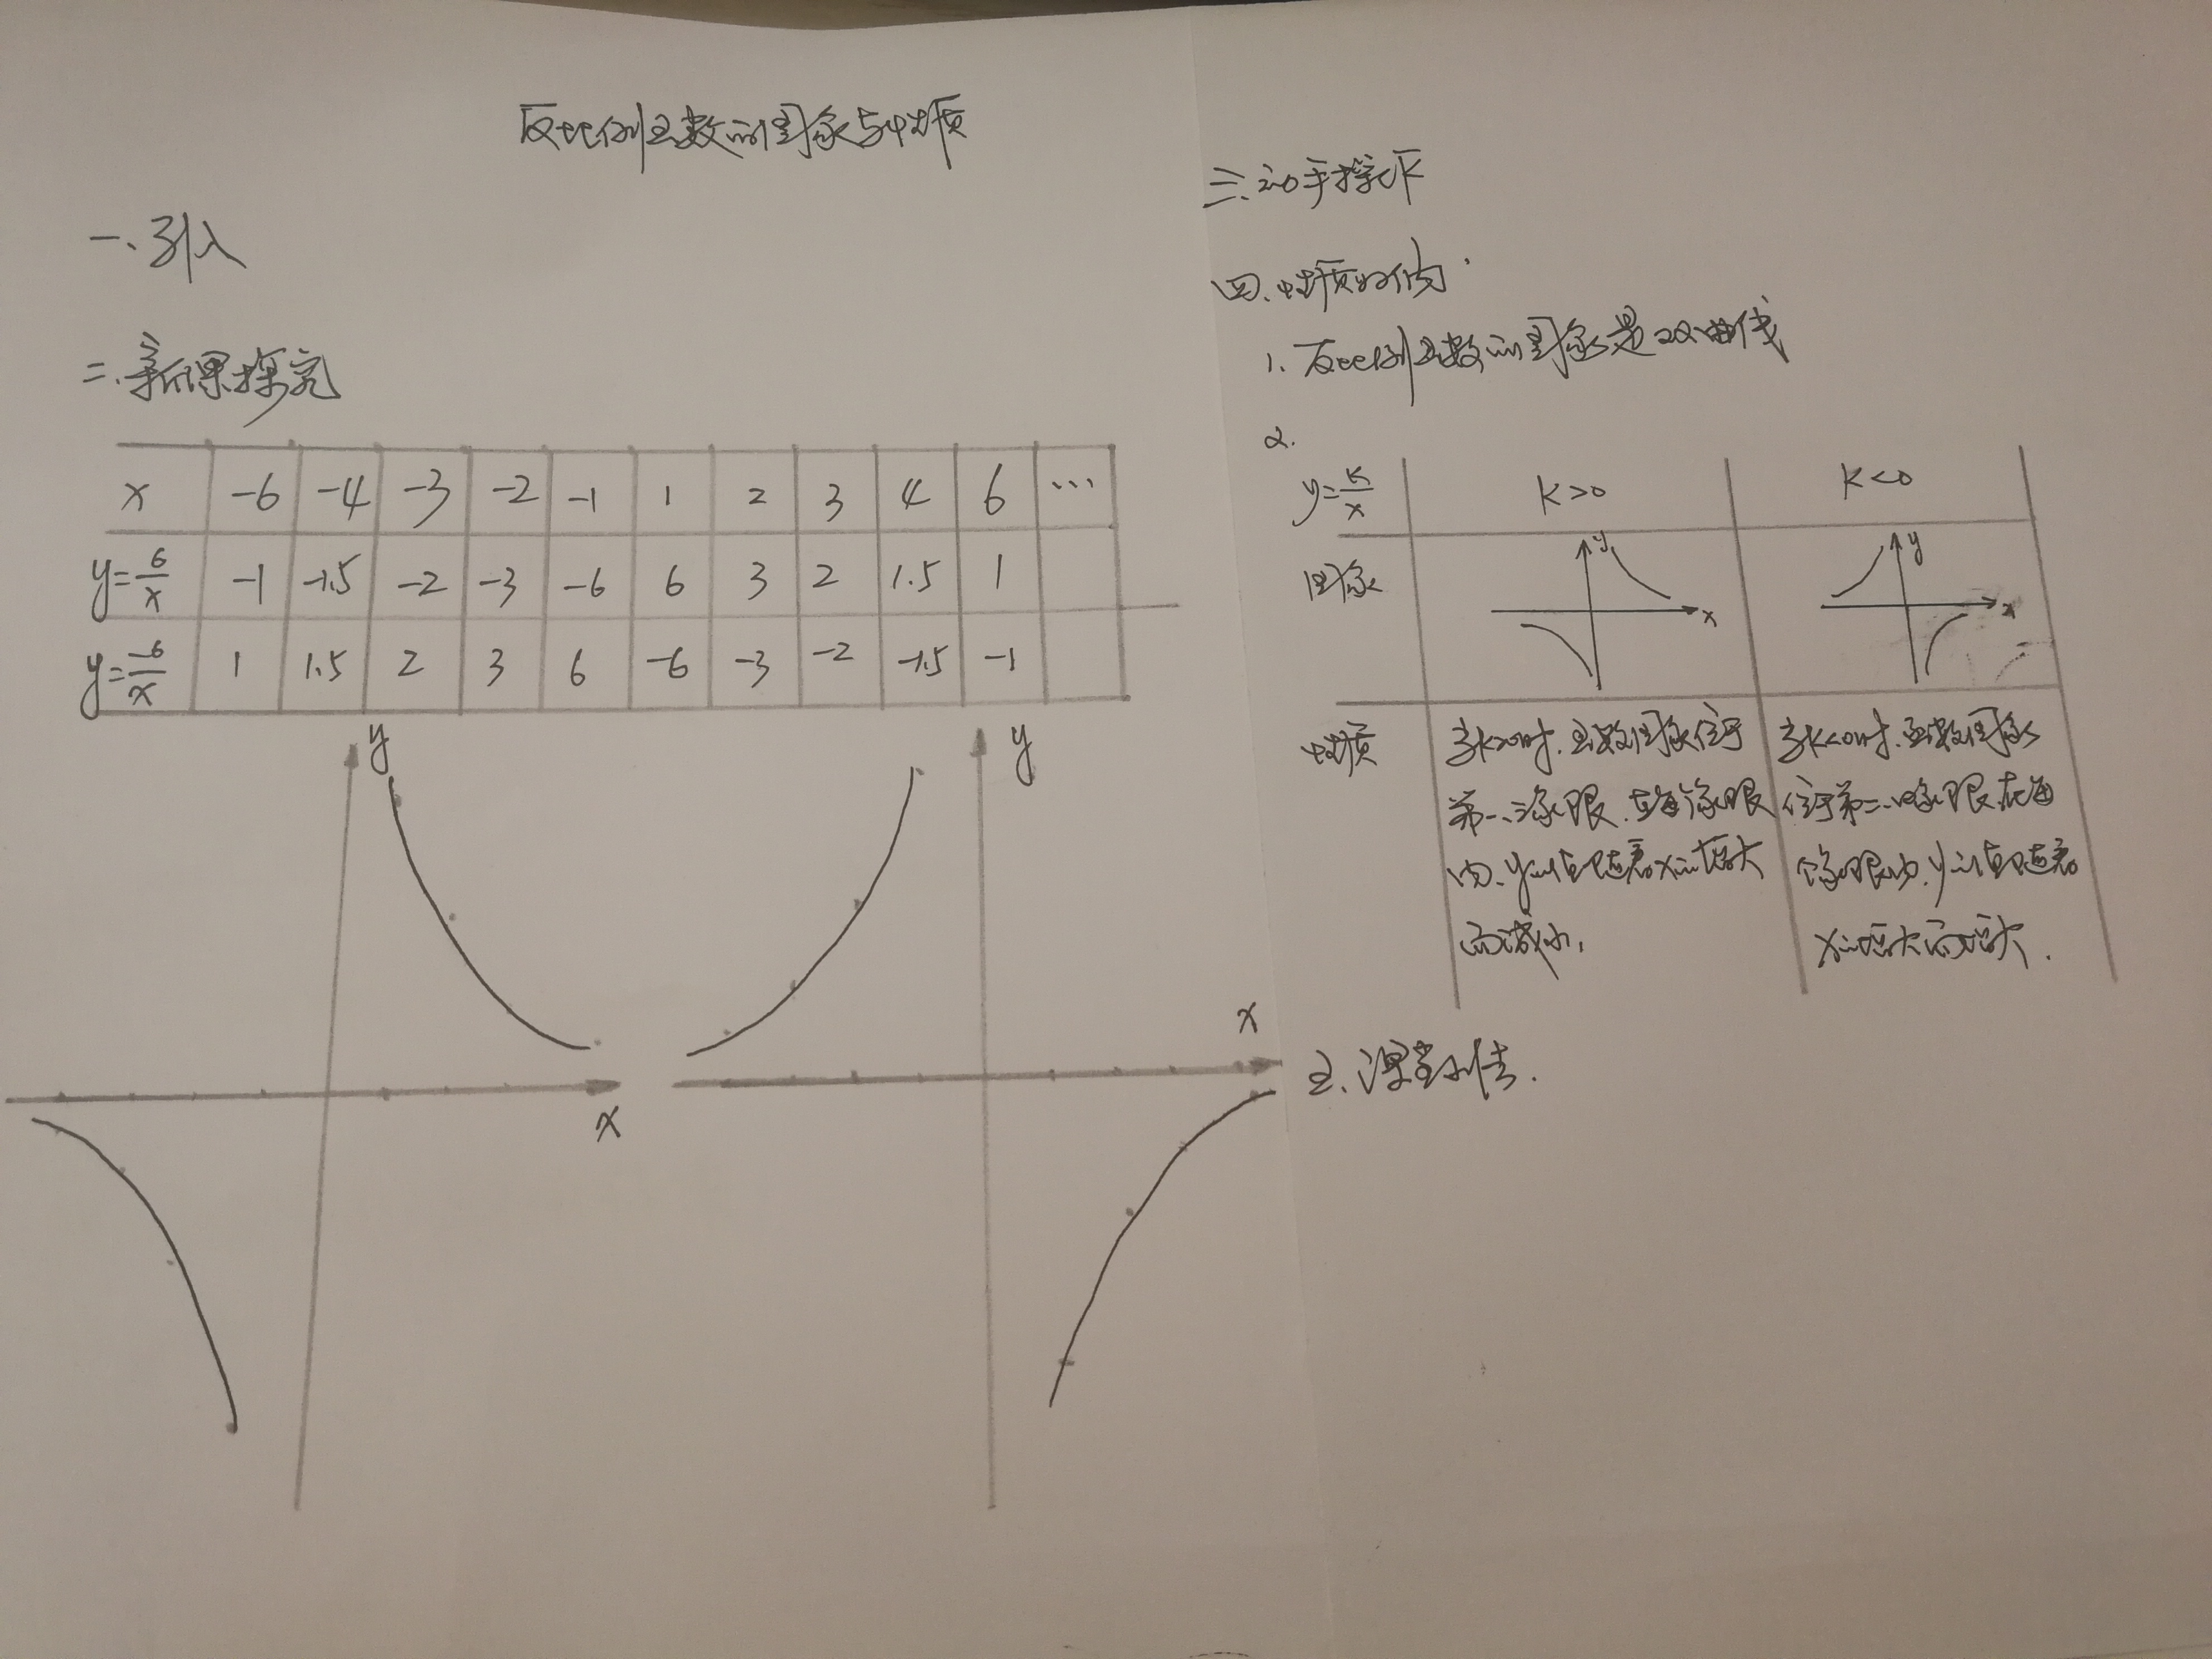 反比例函数的图象与性质
一、引入
二、新课探究
x -6 -4 -3 -2 -1 1 2 3 4 6 ...
y=6/x -1 -1.5 -2 -3 -6 6 3 2 1.5 1
y=-6/x 1 1.5 2 3 6 -6 -3 -2 -1.5 -1
y
x
y
x
三、动手操作
四、性质归纳
1. 反比例函数的图象是双曲线
2.
y=k/x K>0 K<0
图象
y
x
y
x
性质
当K>0时,函数图象位于
第一、三象限,在每个象限
内,y的值随着x的增大
而减小,
当K<0时,函数图象
位于第二、四象限,在每
个象限内,y的值随着
x的增大而增大.
五、课堂小结.